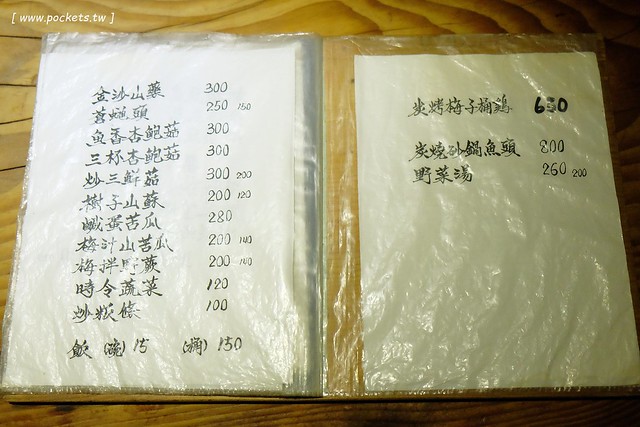 [ www.pockets.tw ]
金沙山藥 300
蒼蠅頭 250 150
魚香杏鮑菇 300
三杯杏鮑菇 300
炒三鮮菇 300 200
樹子山蘇 200 120
鹹蛋苦瓜 280
梅汁山苦瓜 200 140
梅拌野蕨 200 140
時令蔬菜 120
炒粄條 100
飯 (碗) 15 (桶) 150
炭烤梅子桶鷄 650
炭燒砂鍋魚頭 800
野菜湯 260 200